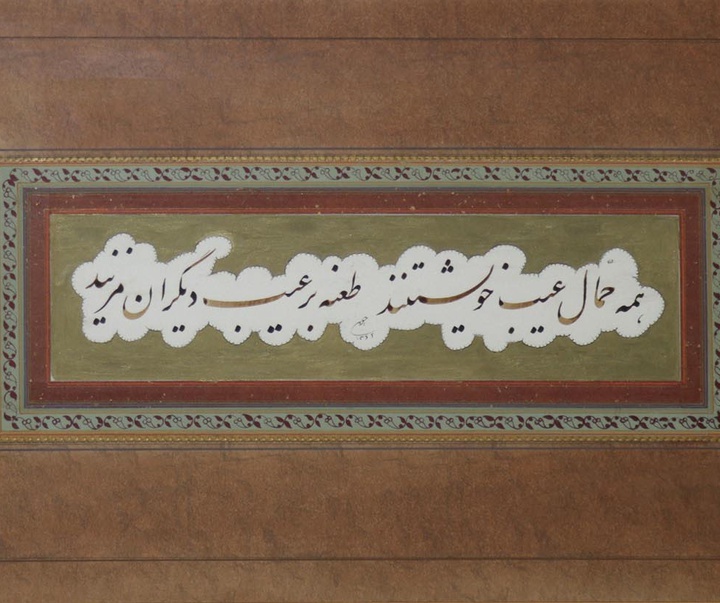 همه حمال عیب خویشتنند طعنه بر عیب دیگران مزنید